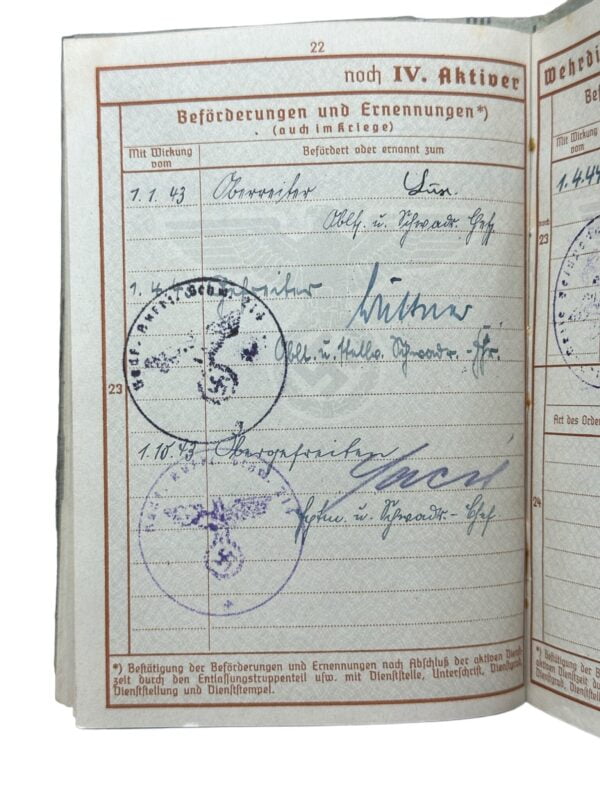 22
noch IV. Aktiver
Beförderungen und Ernennungen*)
(auch im Kriege)
Mit Wirkung vom
Befördert oder ernannt zum
1.1.43 Oberreiter
Oblt. u. Schwadr. Chef
1.4. Gefreiter Büttner
Oblt. u. stellv. Schwadr.-Fhr.
23
1.10.43 Obergefreiten
Hptm. u. Schwadr.-Chef
*) Bestätigung der Beförderungen und Ernennungen nach Abschluß der aktiven Dienst-
zeit durch den Entlassungstruppenteil usw. mit Dienststelle, Unterschrift, Dienstgrad,
Dienststellung und Dienststempel.
Wehrdi
Mit Wirkung vom
1.4.44
23
Art des Orden
24
*) Bestätigung der